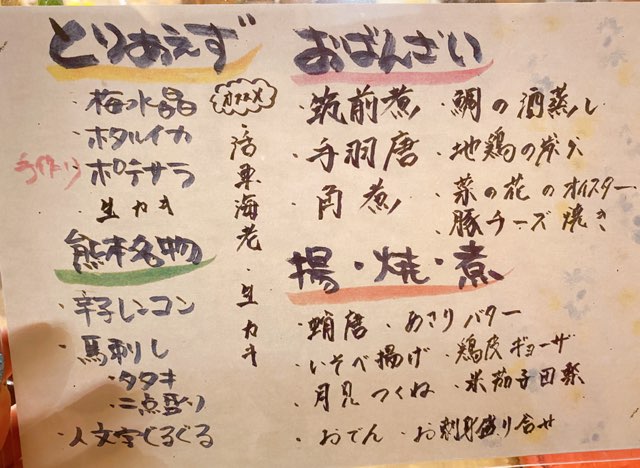 とりあえず
・梅水晶
・ホタルイカ
手作り ・ポテサラ
・生カキ
オススメ
・活車海老・生カキ
熊本名物
・辛子レンコン
・馬刺し
・タタキ
・二点盛り
・人文字ぐるぐる
おばんざい
・筑前煮
・手羽唐
・角煮
・鯛の酒蒸し
・地鶏の炭火
・菜の花のオイスター
・豚チーズ焼き
揚・焼・煮
・蛸唐 ・あさりバター
・いそべ揚げ ・鶏皮ギョーザ
・月見つくね ・米茄子田楽
・おでん ・お刺身盛り合せ